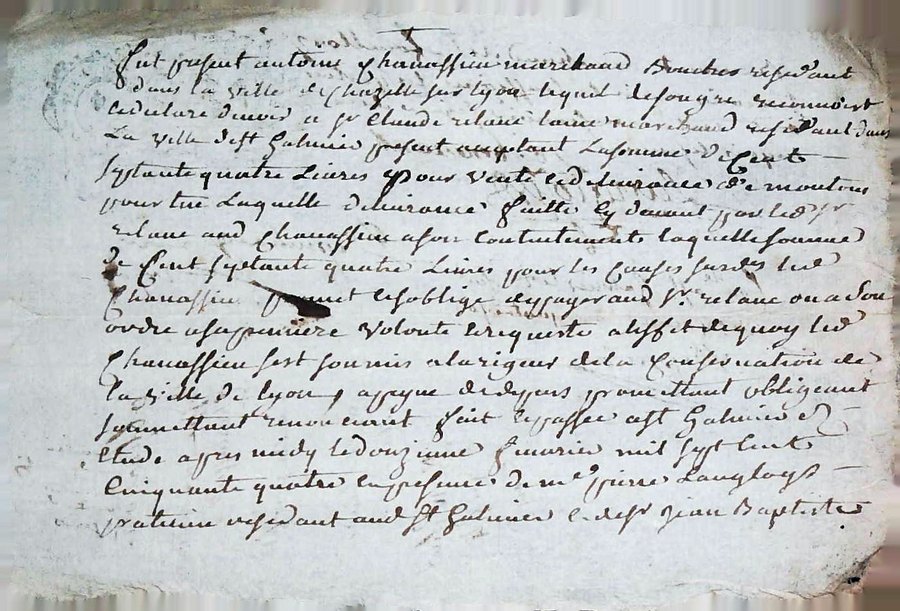 fut present antoine Chauassieu marchand Boucher residant
dans la ville de Chazelle sur lyon lequel de son gre reconnoist
et declare devoir a sr Claude relaue marchand residant dans
La ville de st Galmier present acceptant La somme de Cent
septante quatre Livres pour vente et deliurance de moutons
pour luy Laquelle deliurance faitte cy deuant par led sr
relaue aud Chauassieu a son Contentement laquelle somme
de Cent septante quatre Livres pour les Causes susd led
Chauassieu promet et soblige de payer aud sr relaue ou a son
ordre a sa premiere volonte et requeste a leffet de quoy led
Chauassieu sest soumis a la rigeur de la Conservation de
la ville de lyon a peyne de depens promettant obligeant
soumettant renoncant fait et passe a st Galmier
Etude apres midy le douzieme feurier mil sept Cent
Cinquante quatre en presence de me pierre Langloys
praticien residant aud st Galmier et de sr jean Baptiste